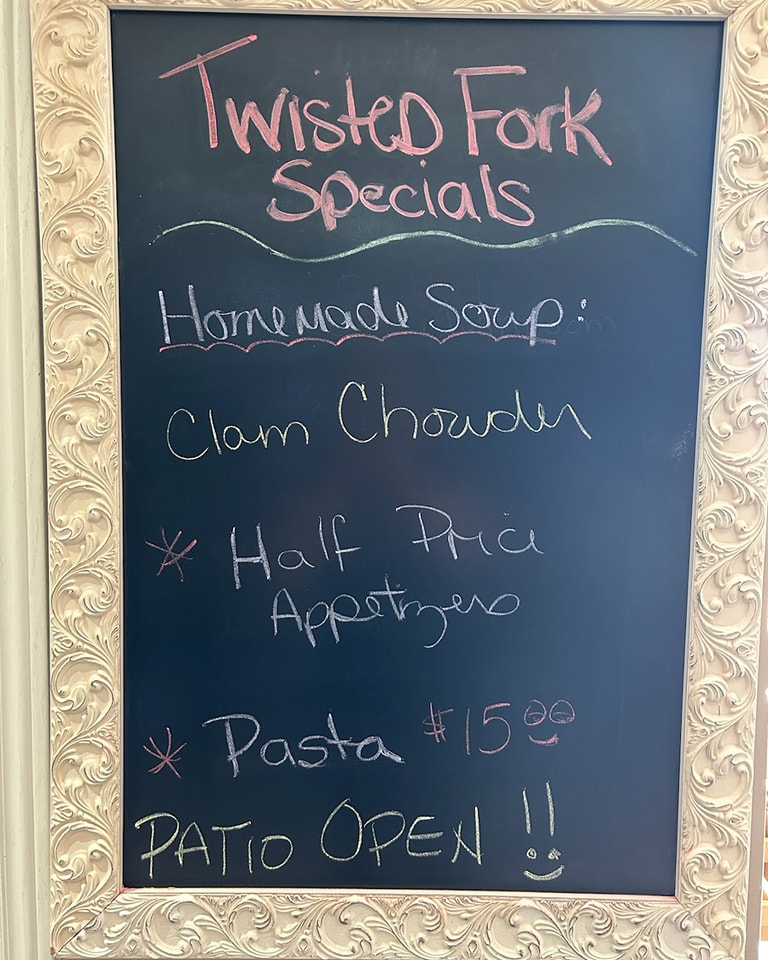 Twisted Fork
Specials
Homemade Soup:
Clam Chowder
* Half Price
Appetizers
* Pasta $15.00
PATIO OPEN !!